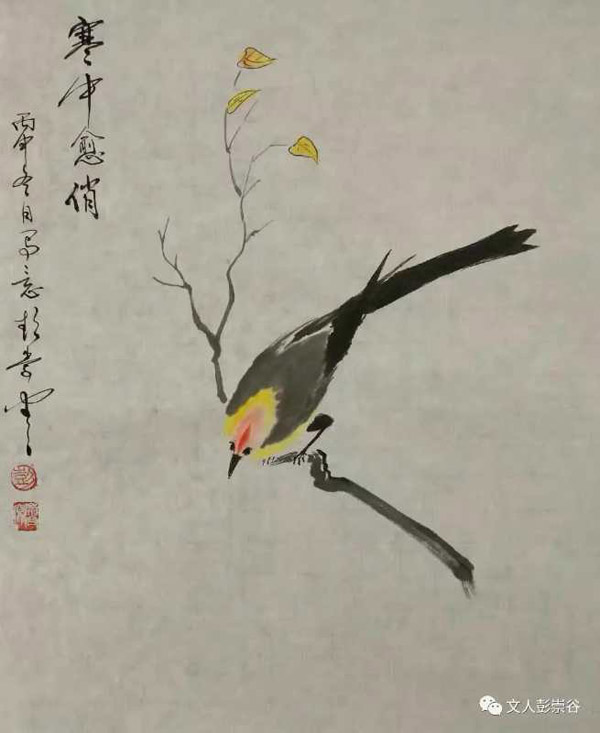 寒中愈俏
丙申冬月写意彭崇谷
文人彭崇谷